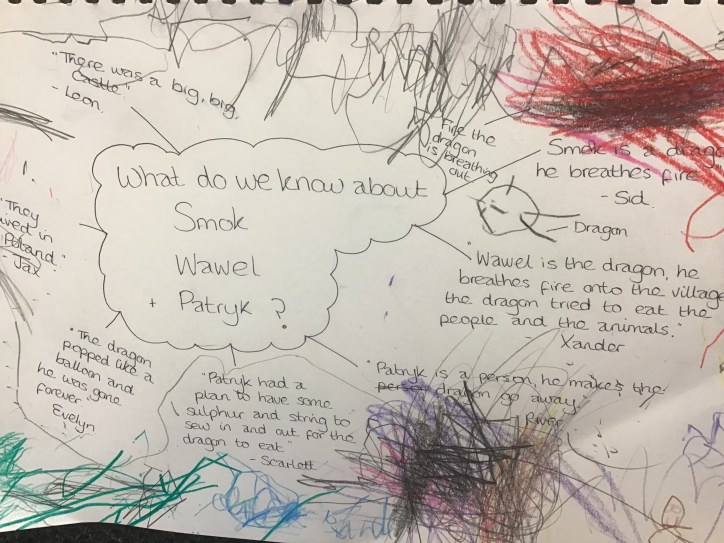 "There was a big, big
Castle"
- Leon.
Fire the
dragon
is breathing
out
Smok is a dragon
he breathes fire"
- Sid.
Dragon
What do we know about
Smok
Wawel
+ Patryk ?
"They
lived in
Poland"
- Jax
"Wawel is the dragon, he
breathes fire onto the village
the dragon tried to eat the
people and the animals."
- Xander
"The dragon
popped like a
balloon and
he was gone
forever"
Evelyn
"Patryk had a
plan to have some
sulphur and string to
sew in and out for the
dragon to eat"
- Scarlott
"Patryk is a person, he makes the
person dragon go away."
River